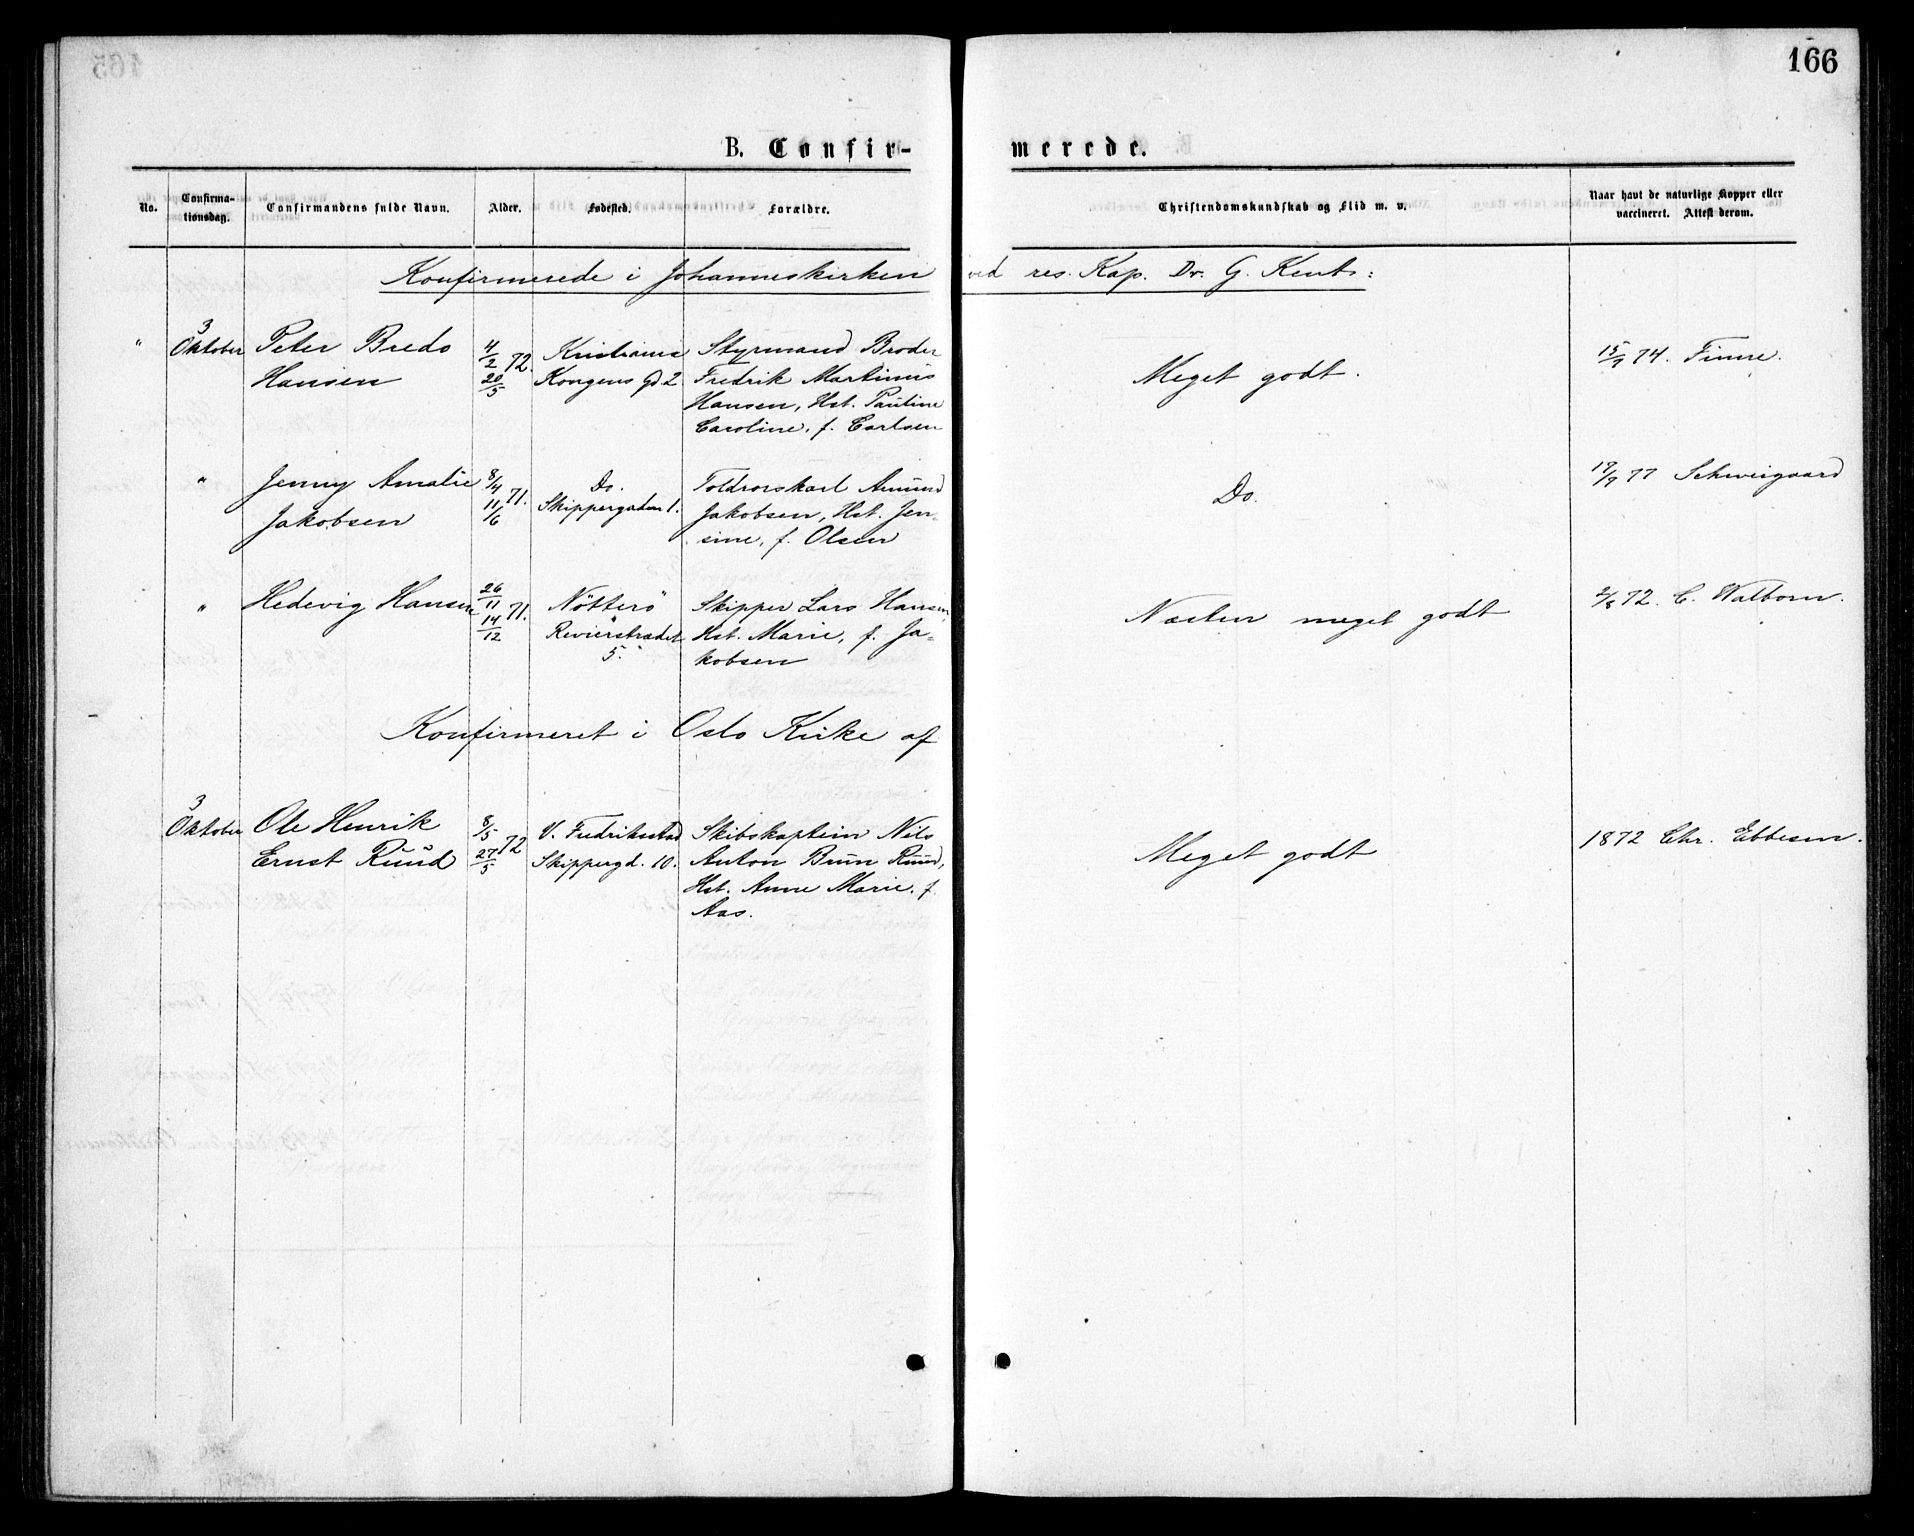 166
B. Confir-
merede.
No.
Confirma-
tionsdag.
Confirmandens fulde Navn.
Alder.
Fødested.
Forældre.
Christendomskundskab og Flid m. v.
Naar havt de naturlige Kopper eller
vaccineret. Attest derom.
Konfirmerede i Johanneskirken ved res. Kap. Dr. G. Kent:
"
3
Oktober
Peter Bredo
Hansen
4/2 72.
20/5
Kristiania
Kongens Gd 2
Styrmand Broder
Fredrik Martinius
Hansen, Hst. Pauline
Caroline, f. Carlsen
Meget godt.
15/9 74. Finne.
"
Jenny Amalie
Jakobsen
8/4 71.
11/6
Do.
Skippergaden 1.
Toldrorskarl Amund
Jakobsen, Hst. Jen-
sine, f. Olsen
Do.
17/9 77 Schweigaard
"
Hedevig Hansen
26/11 71.
14/12
Nötterö
Revierstrædet
5.
Skipper Lars Hansen,
Hst. Marie, f. Ja-
kobsen
Næsten meget godt
2/8 72. C. Walborn.
Konfirmeret i Oslo Kirke af
3
Oktober
Ole Henrik
Ernst Ruud
8/5 72
27/5
V. Fredriksstad
Skippergd. 10.
Skibskaptein Nils
Anton Brun Ruud,
Hst. Anne Marie, f.
Aas.
Meget godt
1872 Chr. Ebbesen.